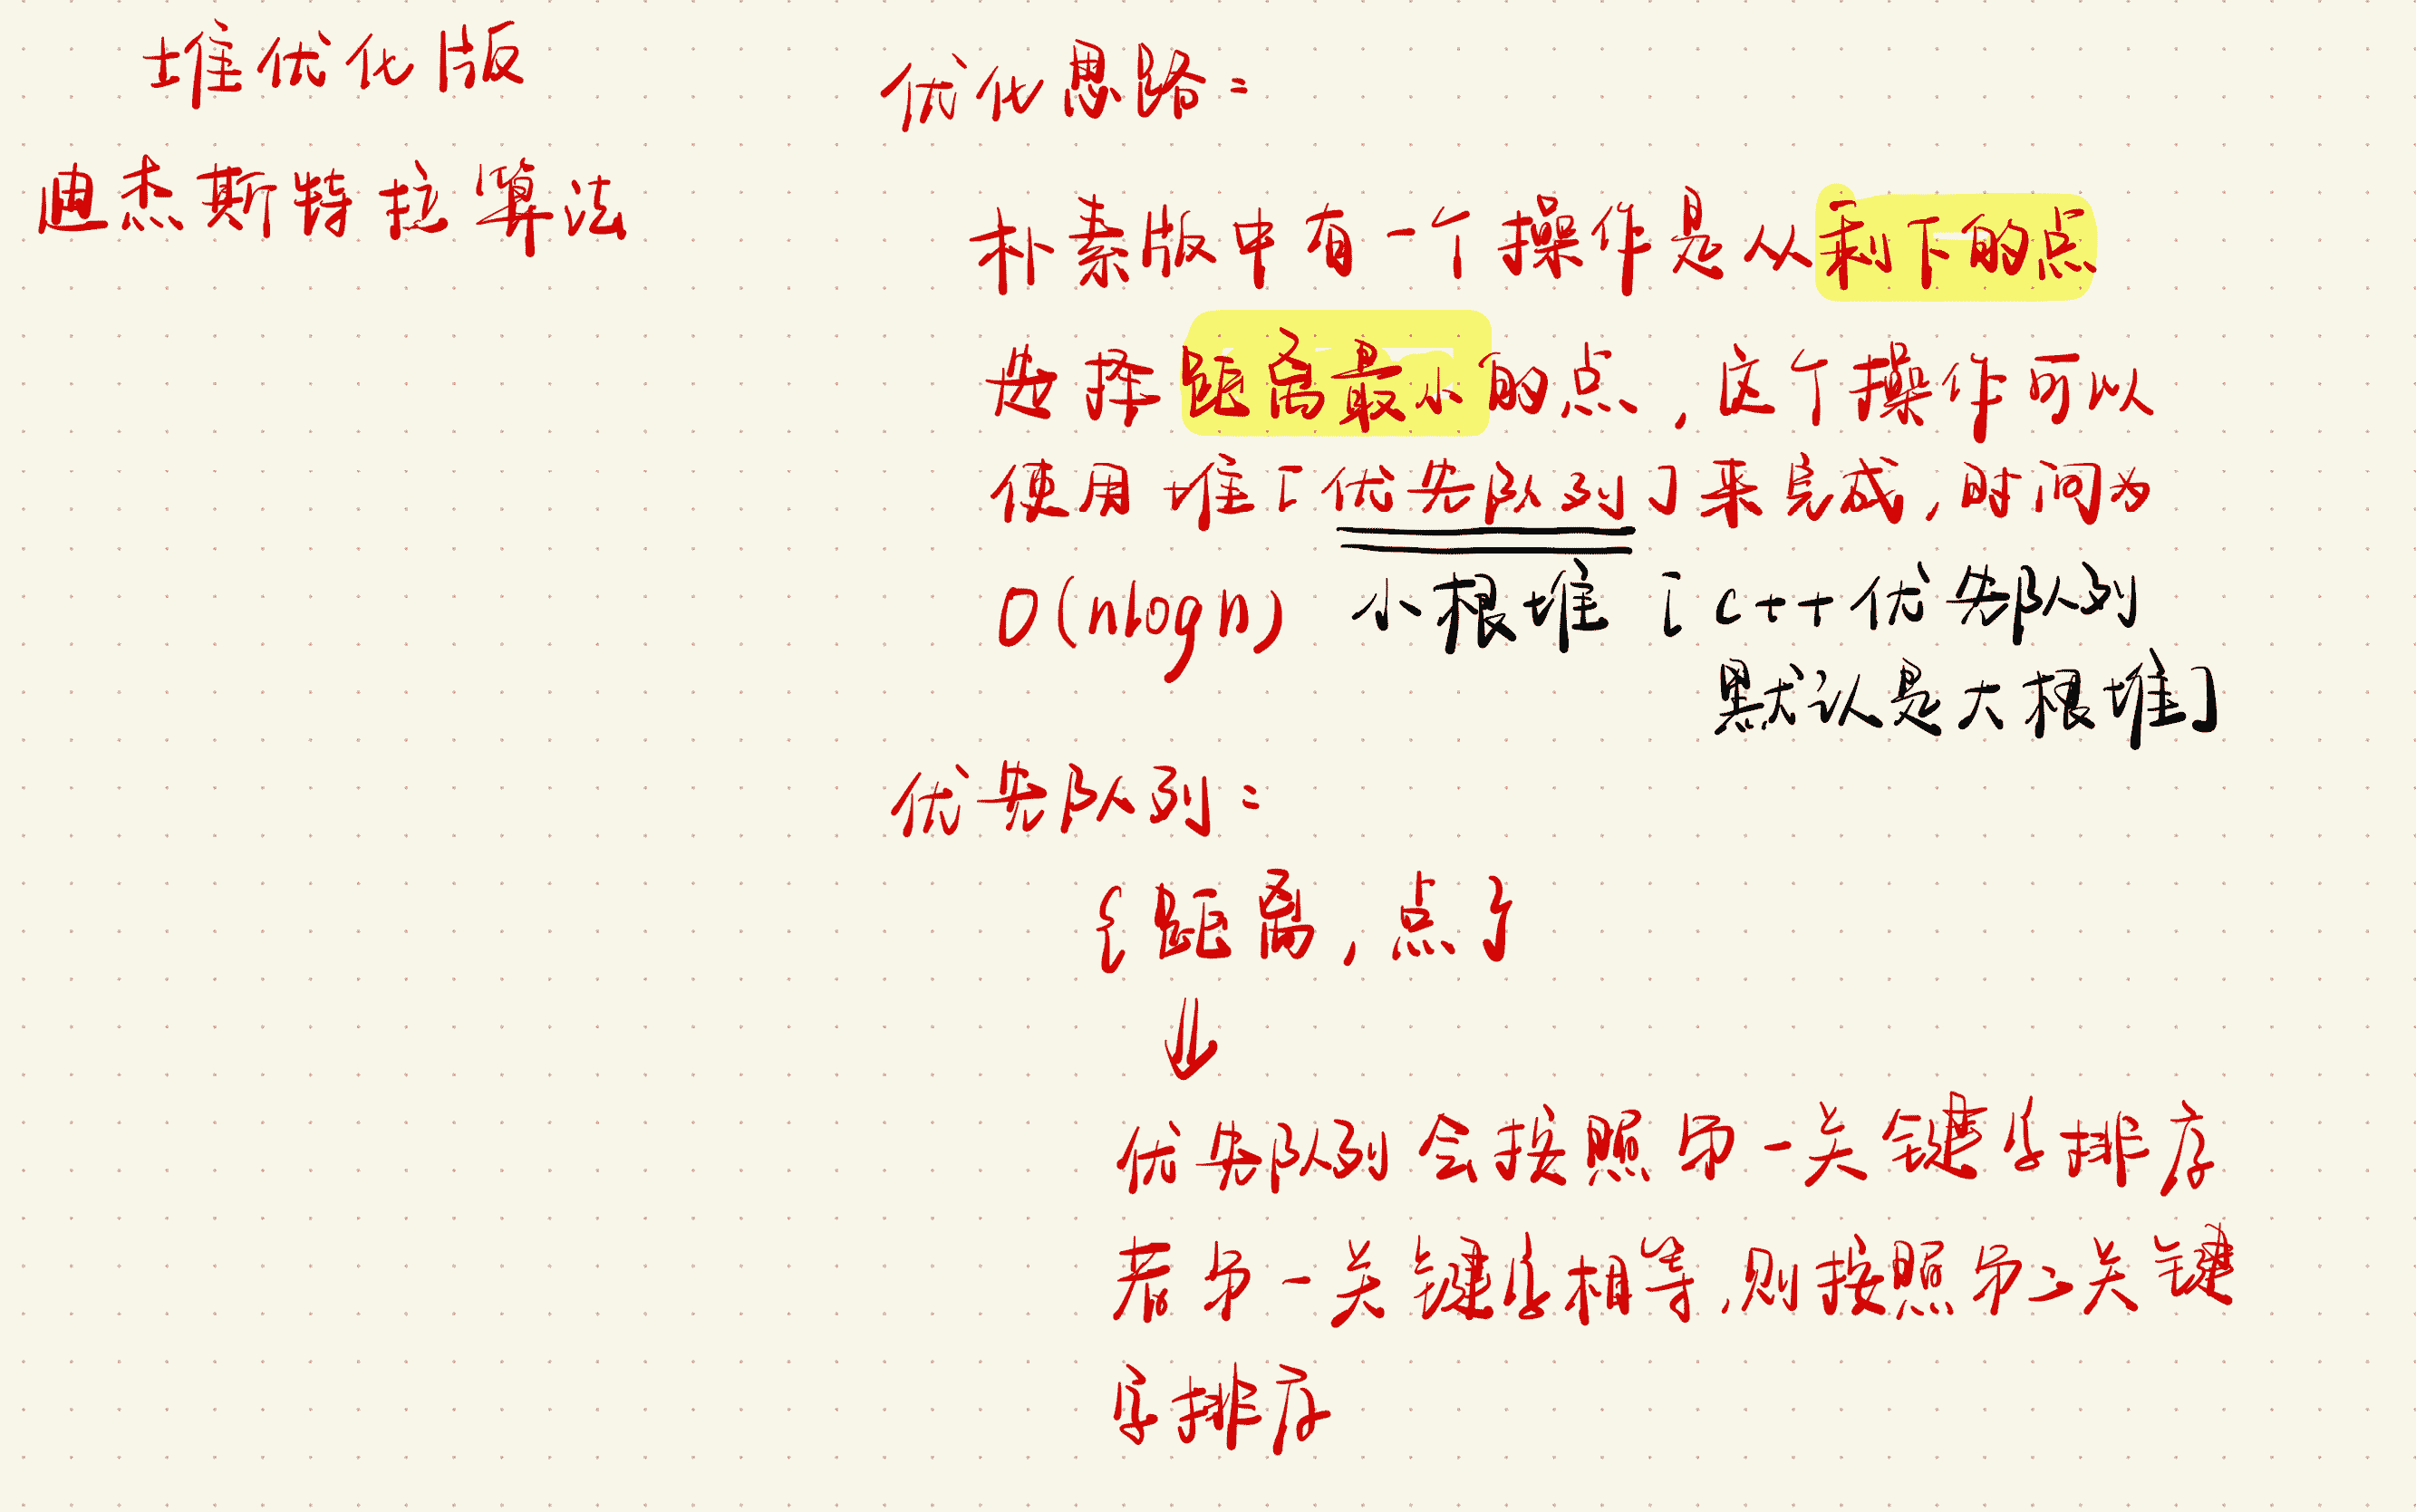 堆优化版
迪杰斯特拉算法
优化思路：
朴素版中有一个操作是从剩下的点
选择距离最小的点，这个操作可以
使用堆[优先队列]来完成，时间为
O(nlogn) 小根堆 [c++优先队列
默认是大根堆]
优先队列：
{距离，点}
↓
优先队列会按照第一关键字排序
若第一关键字相等，则按照第二关键
字排序